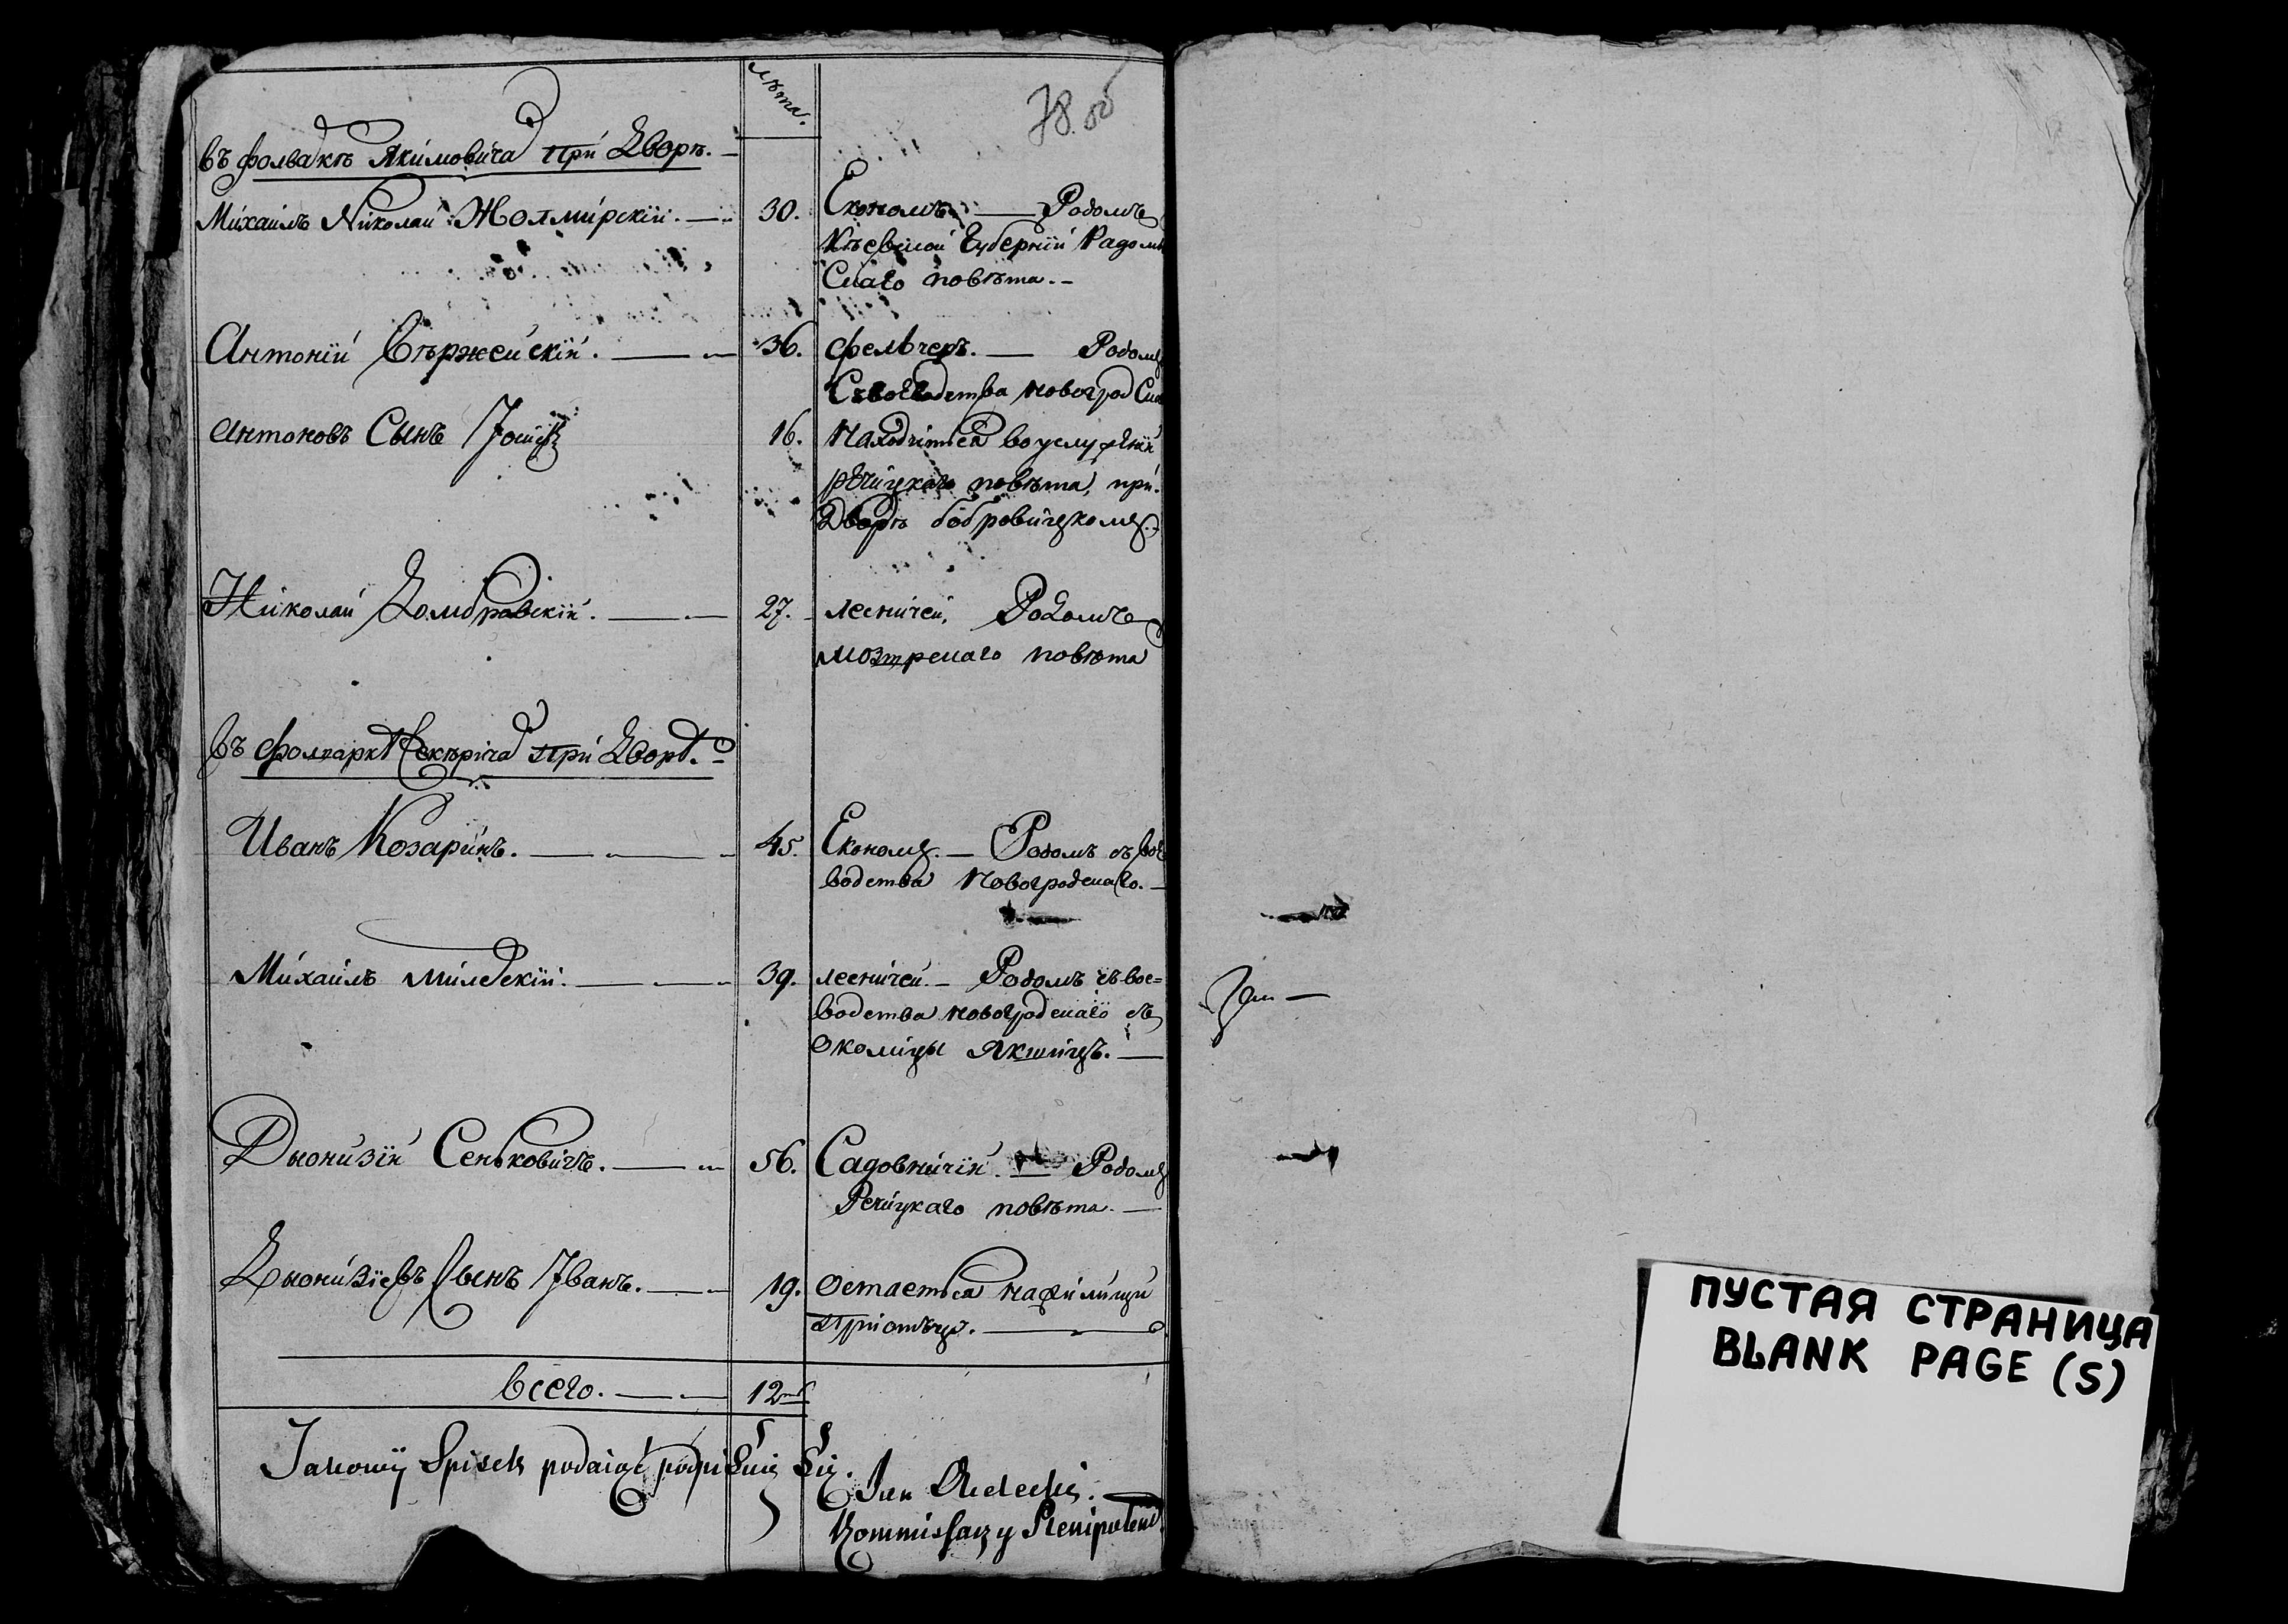 лѣта.
78.об
въ фолвакѣ Якимовича при Дворѣ.
Михаилъ Николаи Жолмирскіи. 30. Економъ — Родомъ
Кіевской Губерніи Радомы
Скаго повѣта.
Антоніи Вѣржейскіи. 36. фельчеръ. — Родомъ
Своеводства новогрод Ска
Антоновъ Сынъ 16. Находитса во услуженіи
речицкаго повѣта, при.
Дворѣ бобровицкомъ.
Николаи Домбровскіи. 27. лесничеи, Родомъ
мозырскаго повѣта
въ фолваркѣ при Дворѣ.
Иванъ Козаринъ. 45. Економъ. — Родомъ съ вое
водства Новогродскаго.
Михаилъ Милевскіи. 39. лесничеи. — Родомъ съ вое=
водства новогродскаго съ
Околицы Якшицъ.
Дыонизіи Сеньковичъ. 56. Садовничіи. — Родомъ
Речицкаго повѣта.
Дыонизіевъ Сынъ Іванъ. 19. Остаетса нажилищи
приотъцу.
Всего. 12
Takowy Spisek podaiąć podpisuię Się.
Jan
Kommissarz y Plenipotent
ПУСТАЯ СТРАНИЦА
BLANK PAGE (S)